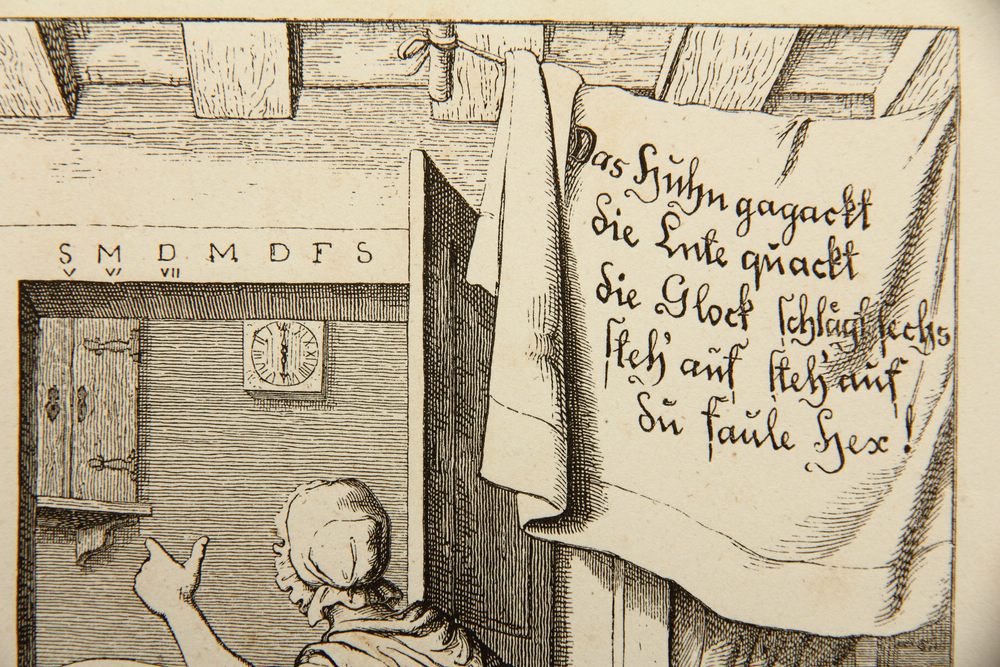 Das Huhn gagackt
die Ente quackt
die Glock schlägt sechs
steh' auf steh' auf
du faule Hex!
S M D M D F S
V VI VII